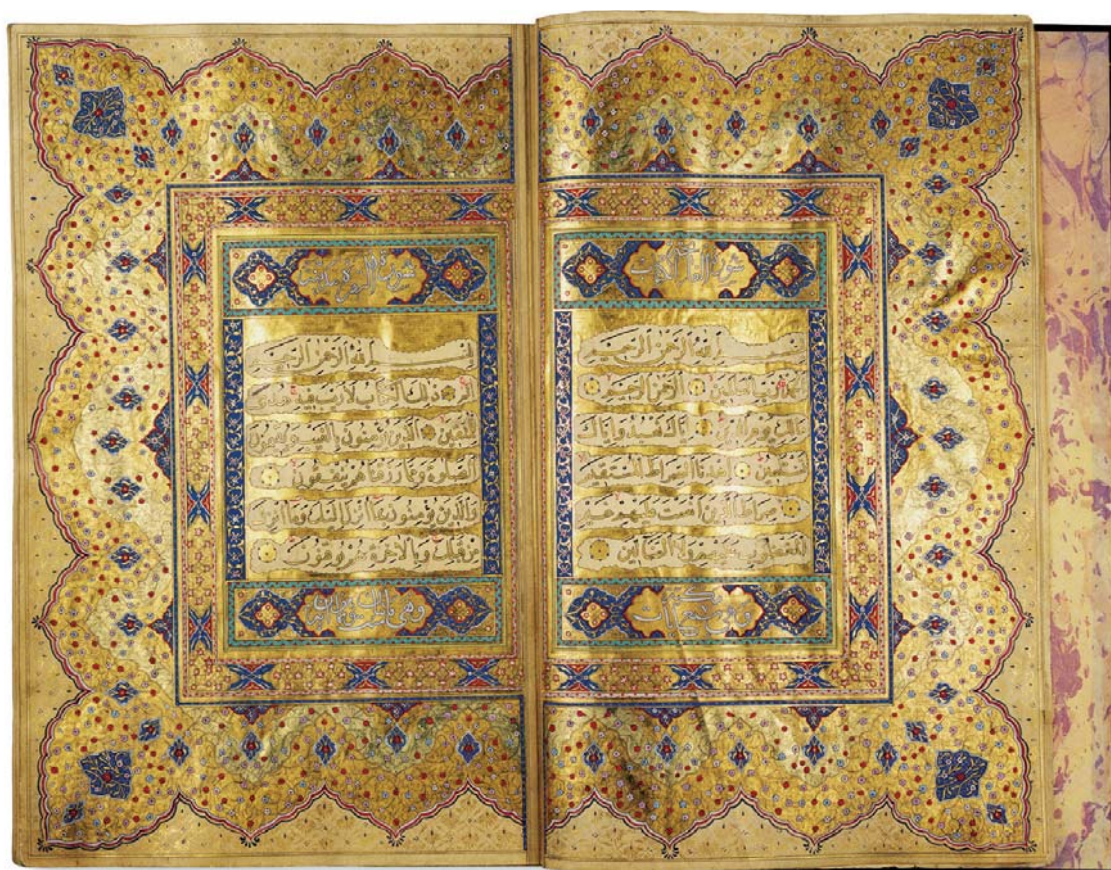 سورة فاتحة الكتاب
بسم الله الرحمن الرحيم
الحمد لله رب العالمين الرحمن الرحيم
مالك يوم الدين اياك نعبد واياك
نستعين اهدنا الصراط المستقيم
صراط الذين انعمت عليهم غير
المغضوب عليهم ولا الضالين
وهي سبع آيات
سورة البقرة مدنية
بسم الله الرحمن الرحيم
الم ذلك الكتاب لا ريب فيه هدى
للمتقين الذين يؤمنون بالغيب ويقيمون
الصلوة ومما رزقناهم ينفقون
والذين يؤمنون بما انزل اليك وما انزل
من قبلك وبالاخرة هم يوقنون
وهي